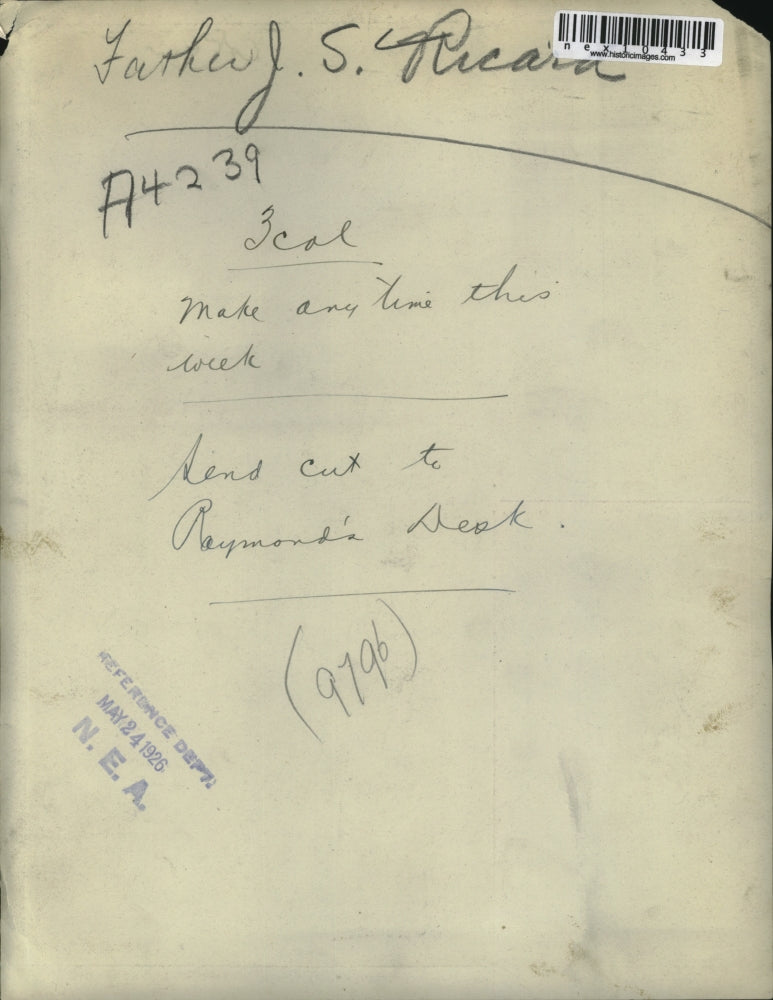 Father J. S. Ricard
nex10433
www.historicimages.com
A4239
3 col
Make any time this
week
Send cut to
Raymond's Desk.
(9796)
REFERENCE DEPT.
MAY 24 1926
N. E. A.